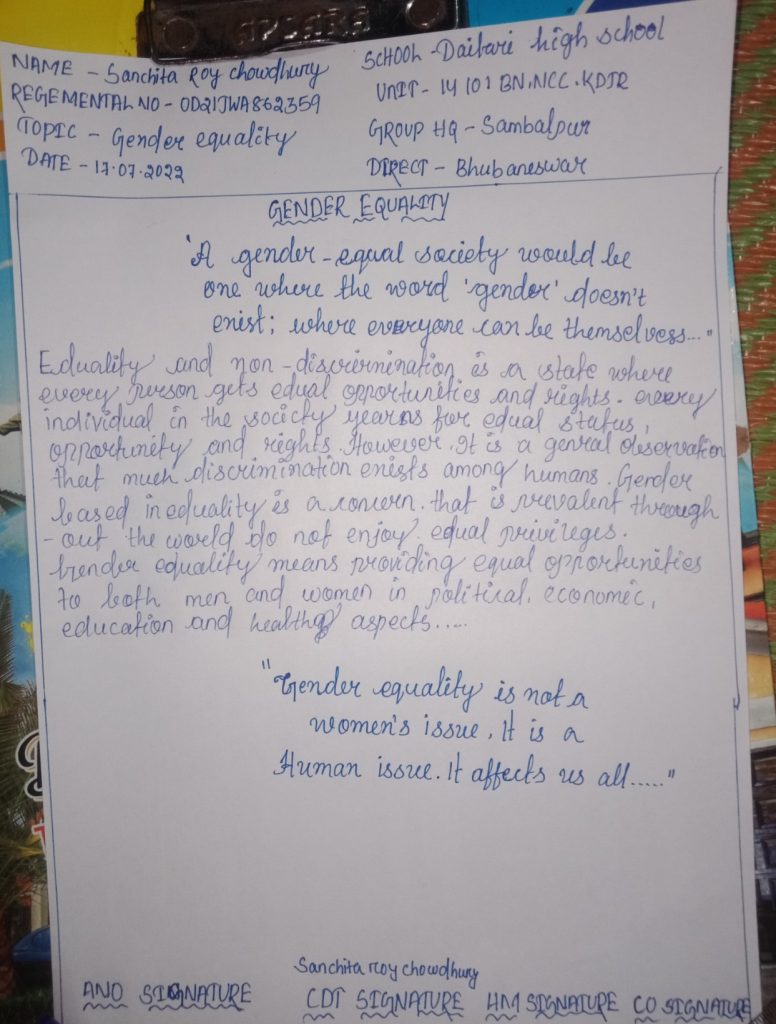 NAME - Sanchita Roy Chowdhury
REGEMENTAL NO - OD21JWA862359
TOPIC - Gender equality
DATE - 17.07.2022
SCHOOL - Daitari high school
UNIT - 14 101 BN.NCC.KDJR
GROUP HQ - Sambalpur
DIRECT - Bhubaneswar
GENDER EQUALITY
'A gender-equal society would be
one where the word 'gender' doesn't
exist; where everyone can be themselvess..."
Eduality and non-discrimination is a state where
every person gets equal opportunities and rights. every
individual in the society yearns for equal status,
opportunity and rights. However. It is a genral observation
that much discrimination exists among humans. Gender
based inequality is a concern. that is prevalent through
-out the world do not enjoy. equal privileges.
Gender equality means providing equal opportuneties
to both men and women in political, economic,
education and health aspects.....
"Gender equality is not a
women's issue, It is a
Human issue. It affects us all....."
Sanchita roy chowdhury
ANO SIGNATURE CDT SIGNATURE HM SIGNATURE CO SIGNATURE